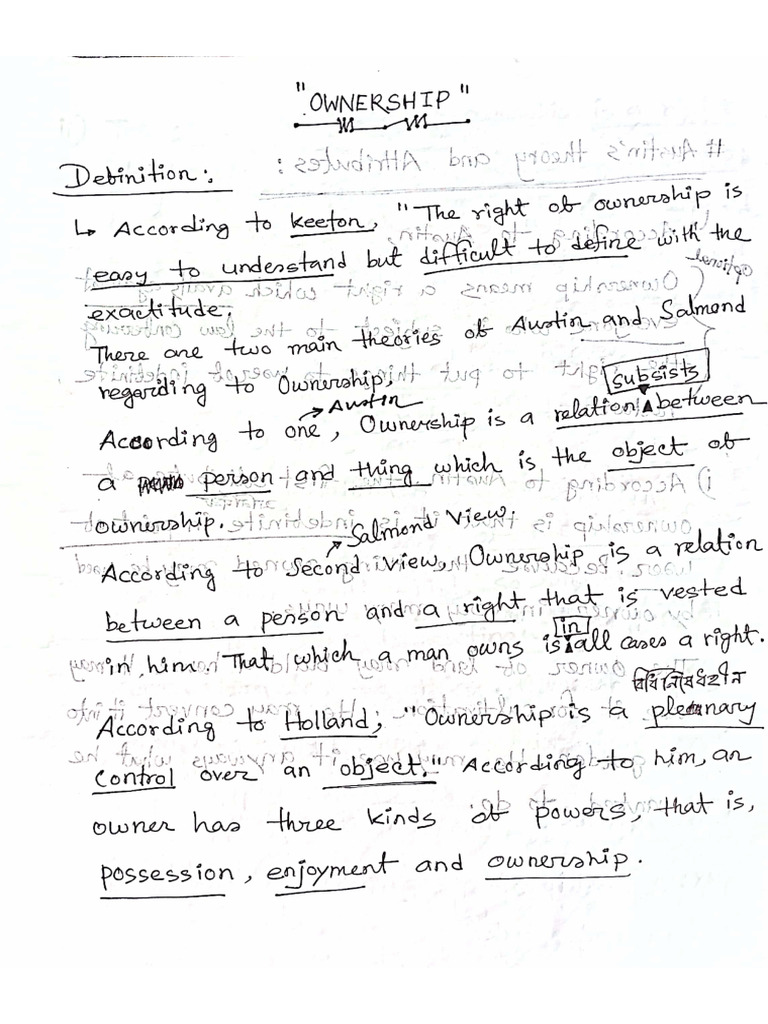 "OWNERSHIP"
Definition:
↳ According to Keeton, "The right of ownership is
easy to understand but difficult to define with the
exactitude.
There are two main theories of Austin and Salmond
regarding to Ownership,
subsists
→ Austin
According to one, Ownership is a relation between
a person and thing which is the object of
ownership.
→ Salmond View.
According to Second View, Ownership is a relation
between a person and a right that is vested
in
in him. That which a man owns is all cases a right.
বিধিনিষেধহীন
According to Holland, "Ownership is a plenary
control over an object." According to him, an
owner has three kinds of powers, that is,
possession, enjoyment and ownership.